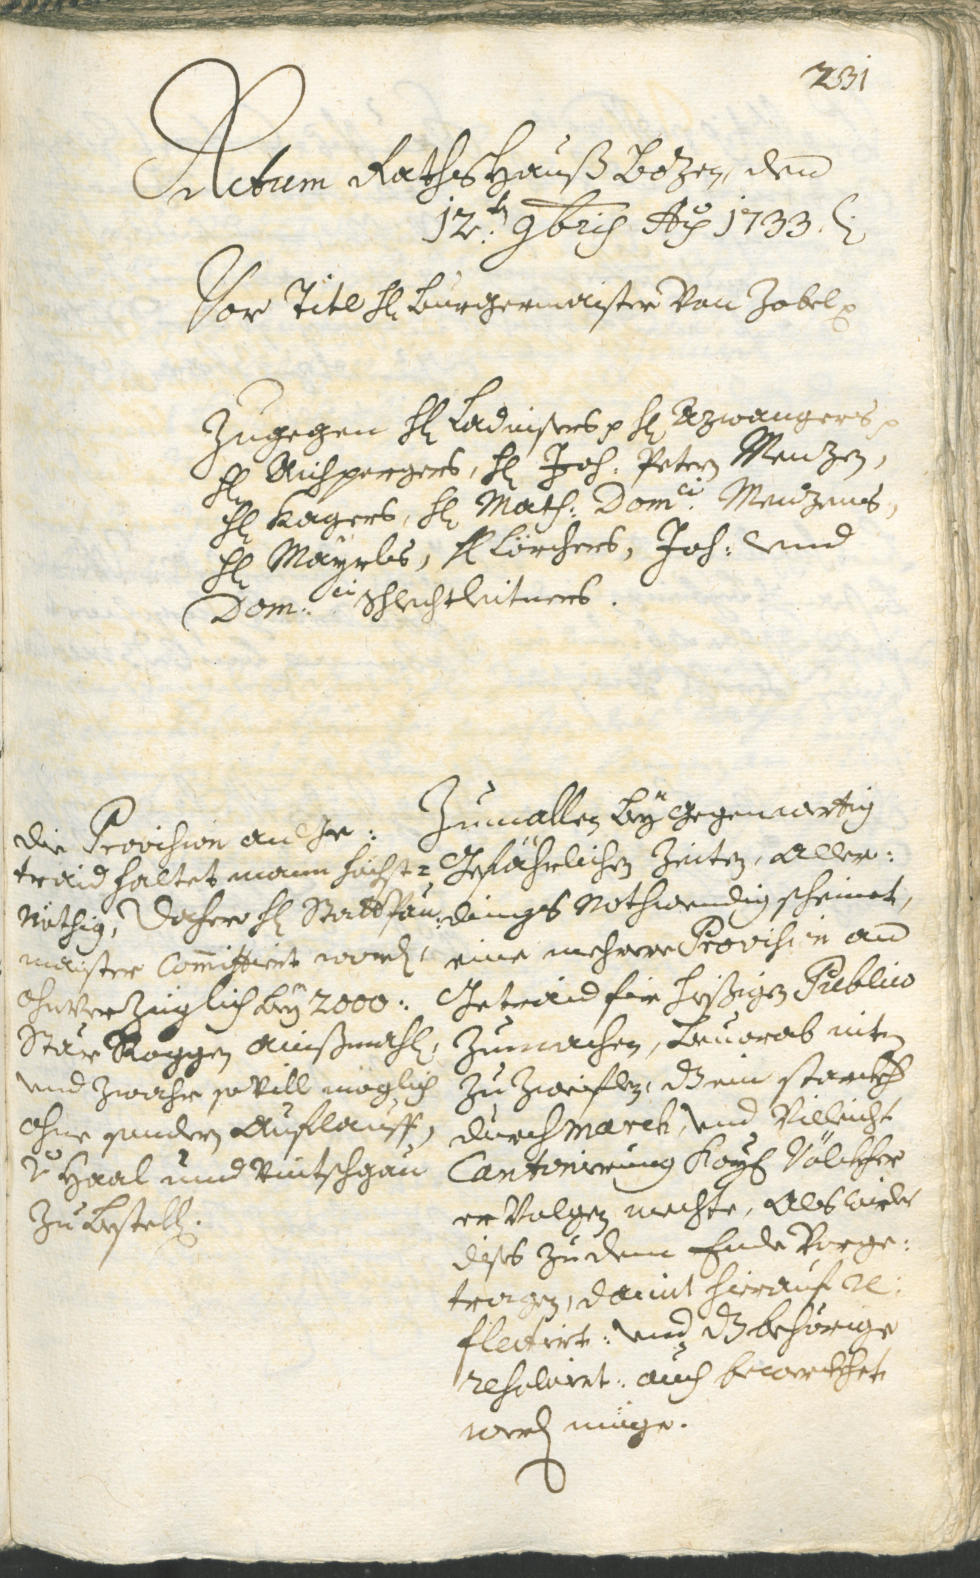 231
Actum RathsHauß Bozen, den
12.ten 9bris Ao 1733.
Vor Titl H. Burgermaister Von Zobel p
Zugegen H. Ladinsers p H. Azwangers p
H. Aichpergers, H. Joh: Peter Menzen,
H. Kagers, H. Math: Dom:ci Menzens,
H. Mayrls, H. Lörchers, Joh: Vnd
Dom:ci Schlechtleitners.
Die Provision an Ge:
traid haltet mann höchst=
Nöthig, Dahero H. StattPau:
maister Committiert worden,
ohnverzüglich bey 2000:
Stär Roggen
Vnd zwahr so Vill möglich
ohne sondern Auflauff,
Haal und Vintschgau
Zu bestellen.
Zumallen bey gegenwertig
Gefährlichen Zeiten, Aller:
dings Nothwendig scheinet,
eine mehrere Provision and
Getraid für hießigen Publico
Zumachen, beuorab niten
Zu Zweiflen, dz ein starckher
durchmarch, Vnd Villeicht
Cantonierung Kayß: Völckher
er Volgen mechte, Als wirdt
dises zu dem Ende Vorge:
tragen, damit hierauf re:
flectirt: Vnd dz behörige
resolvirt: auch bewerckhet
werden möge.